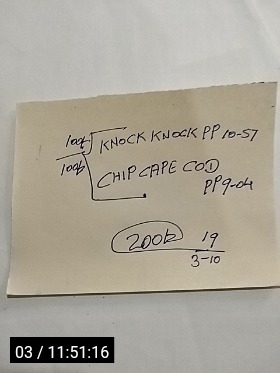 100k KNOCK KNOCK PP 10-57
100k
CHIP CAPE COD
PP 9-04
200k 19
3-10
03 / 11:51:16